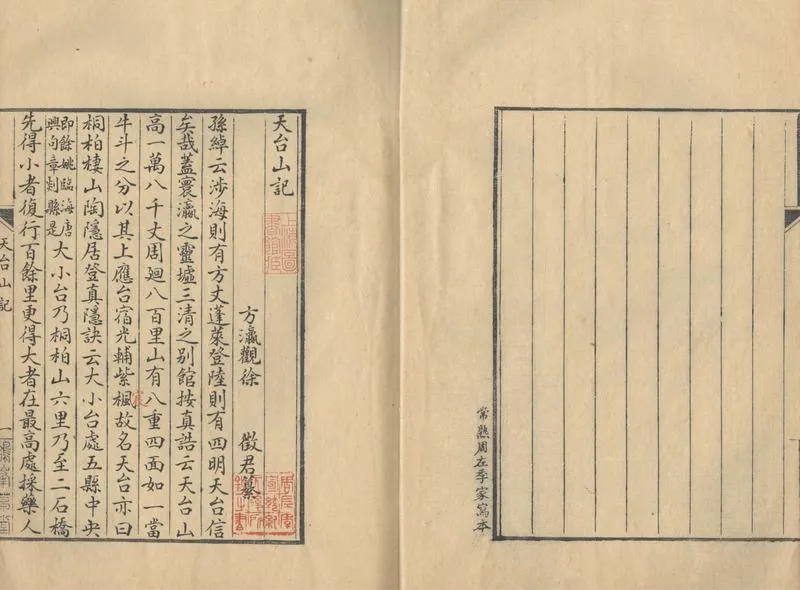 常熟周左季家寫本
天台山記
上海圖書館藏
方瀛觀徐 徵君纂
孫綽云涉海則有方丈蓬萊登陸則有四明天台信
矣哉蓋寰瀛之靈墟三清之別館按真誥云天台山
高一萬八千丈周廻八百里山有八重四面如一當
牛斗之分以其上應台宿光輔紫楓宸故名天台亦曰
桐柏棲山陶隱居登真隱訣云大小台處五縣中央
即餘姚臨海唐
興句章剡縣是
大小台乃桐柏山六里乃至二石橋
先得小者復行百餘里更得大者在最高處採藥人
天台山記
一